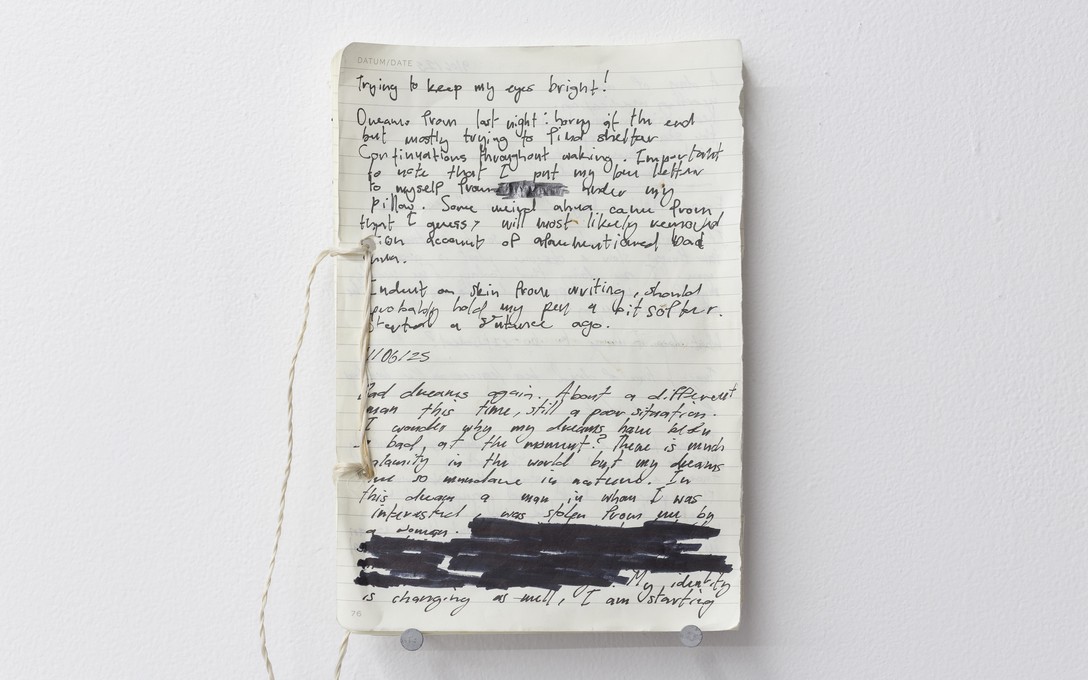 DATUM/DATE
Trying to keep my eyes bright!
Dreams from last night: horny at the end
but mostly trying to find shelter
Continuations throughout waking. Important
to note that I put my love letter
to myself from under my
pillow. Some weird ahna came from
that I guess, will most likely
tion account of aforementioned bad
Indent on skin from writing, should
probably hold my pen a bit softer.
Started a sentence ago.
/06/25
Bad dreams again. About a different
man this time, still a poor situation.
I wonder why my dreams have been
so bad, at the moment? There is much
calamity in the world but my dreams
are so mundane in nature. In
this dream a man in whom I was
interested, was stolen from me by
a woman.
My identity
is changing as well, I am starting
76